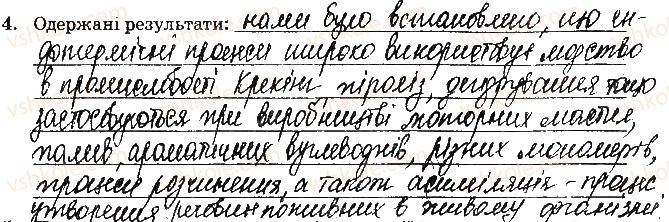 4. Одержані результати: нами було встановлено, що ен-
дотермічні процеси широко використовує людство
в промисловості. Крекінг, піроліз, дегідрування тощо
застосовуються при виробництві моторних мастил,
палив, ароматичних вуглеводнів, різних мономерів,
процеси розчинення, а також асиміляція - процес
утворення речовин поживних в живому організмі